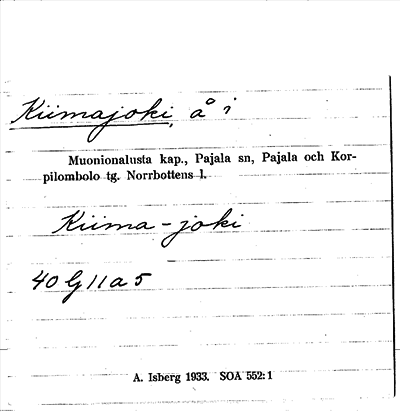 Kiimajoki, å i
Muonionalusta kap., Pajala sn, Pajala och Kor-
pilombolo tg. Norrbottens l.
Kiima-joki
40 G 11 a 5
A. Isberg 1933. SOA 552:1